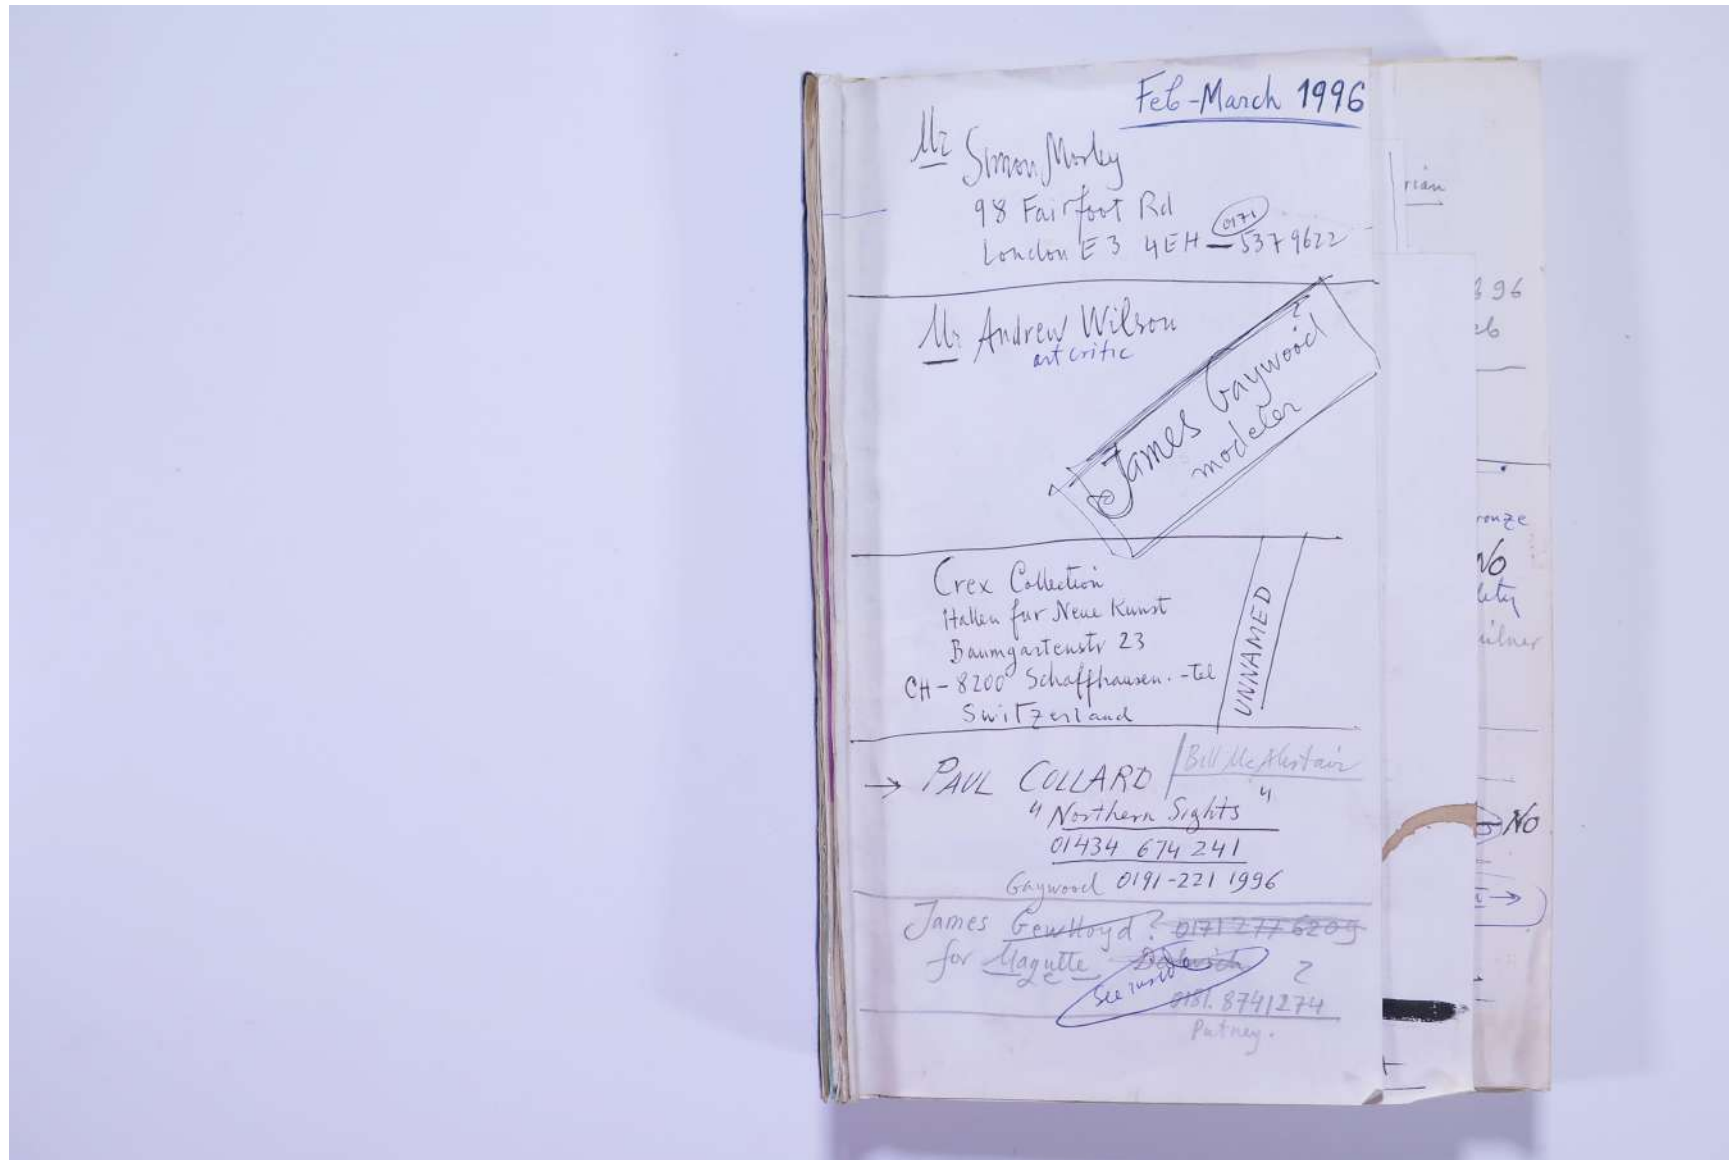 Feb-March 1996
Mr Simon Morley
98 Fairfoot Rd
0171
London E3 4EH - 537 9622
Mr Andrew Wilson
art critic
James Gaywood ?
modeler
Crex Collection
Hallen fur Neue Kunst
Baumgartenstr 23
CH-8200 Schaffhausen. -Tel
Switzerland
UNNAMED
→ PAUL COLLARD
Bill McAlistair
"Northern Sights"
01434 674 241
Gaywood 0191-221 1996
James Gewlloyd? 0171 277 6209
for Maquette
?
See inside
0181. 8741274
Putney.
rian
96
No
No